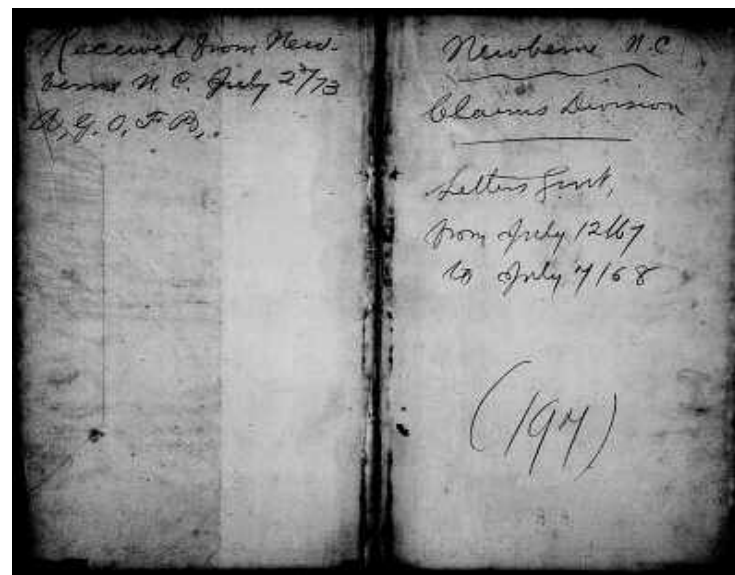 Received from New-
berne N.C. July 2"/73
A, G, O, F B,.
Newberne N.C.
Claims Division
Letters Sent,
from July 12 67
to July 7/68
(197)